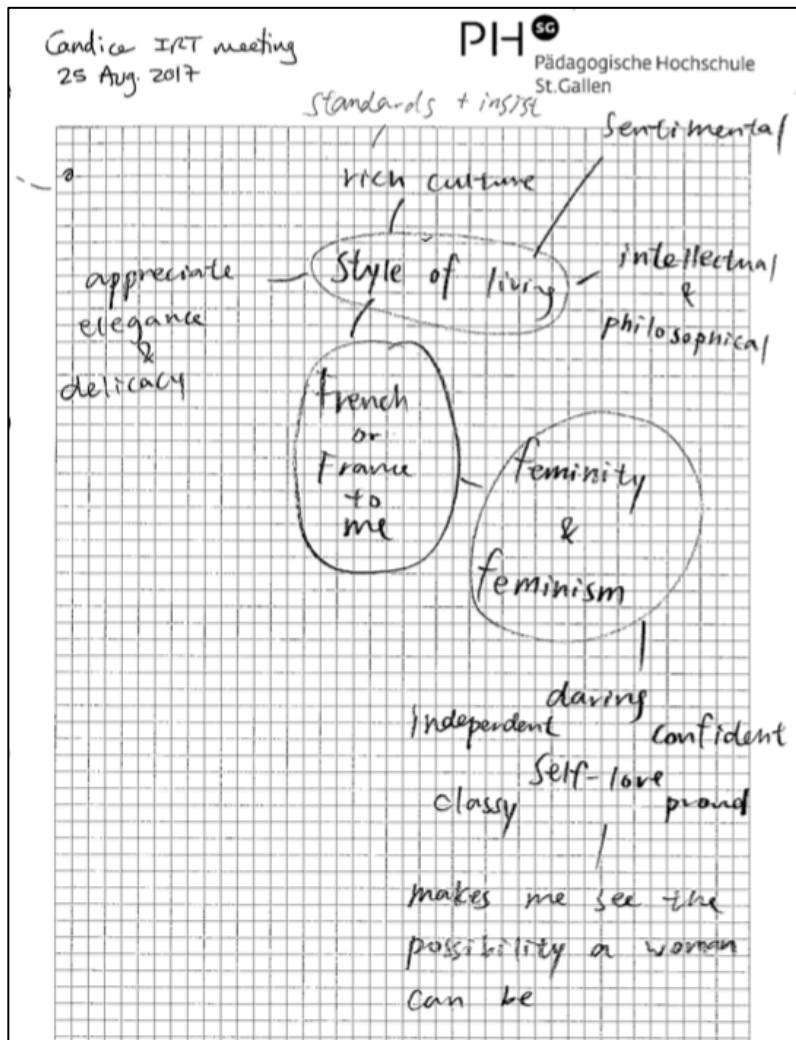 Candice IRT meeting
25 Aug. 2017
PH SG
Pädagogische Hochschule
St.Gallen
standards + insist
sentimental
rich culture
style of living
intellectual
&
philosophical
appreciate
elegance
&
delicacy
french
or
France
to
me
feminity
&
feminism
daring
independent
confident
self-love
classy
proud
makes me see the
possibility a woman
can be